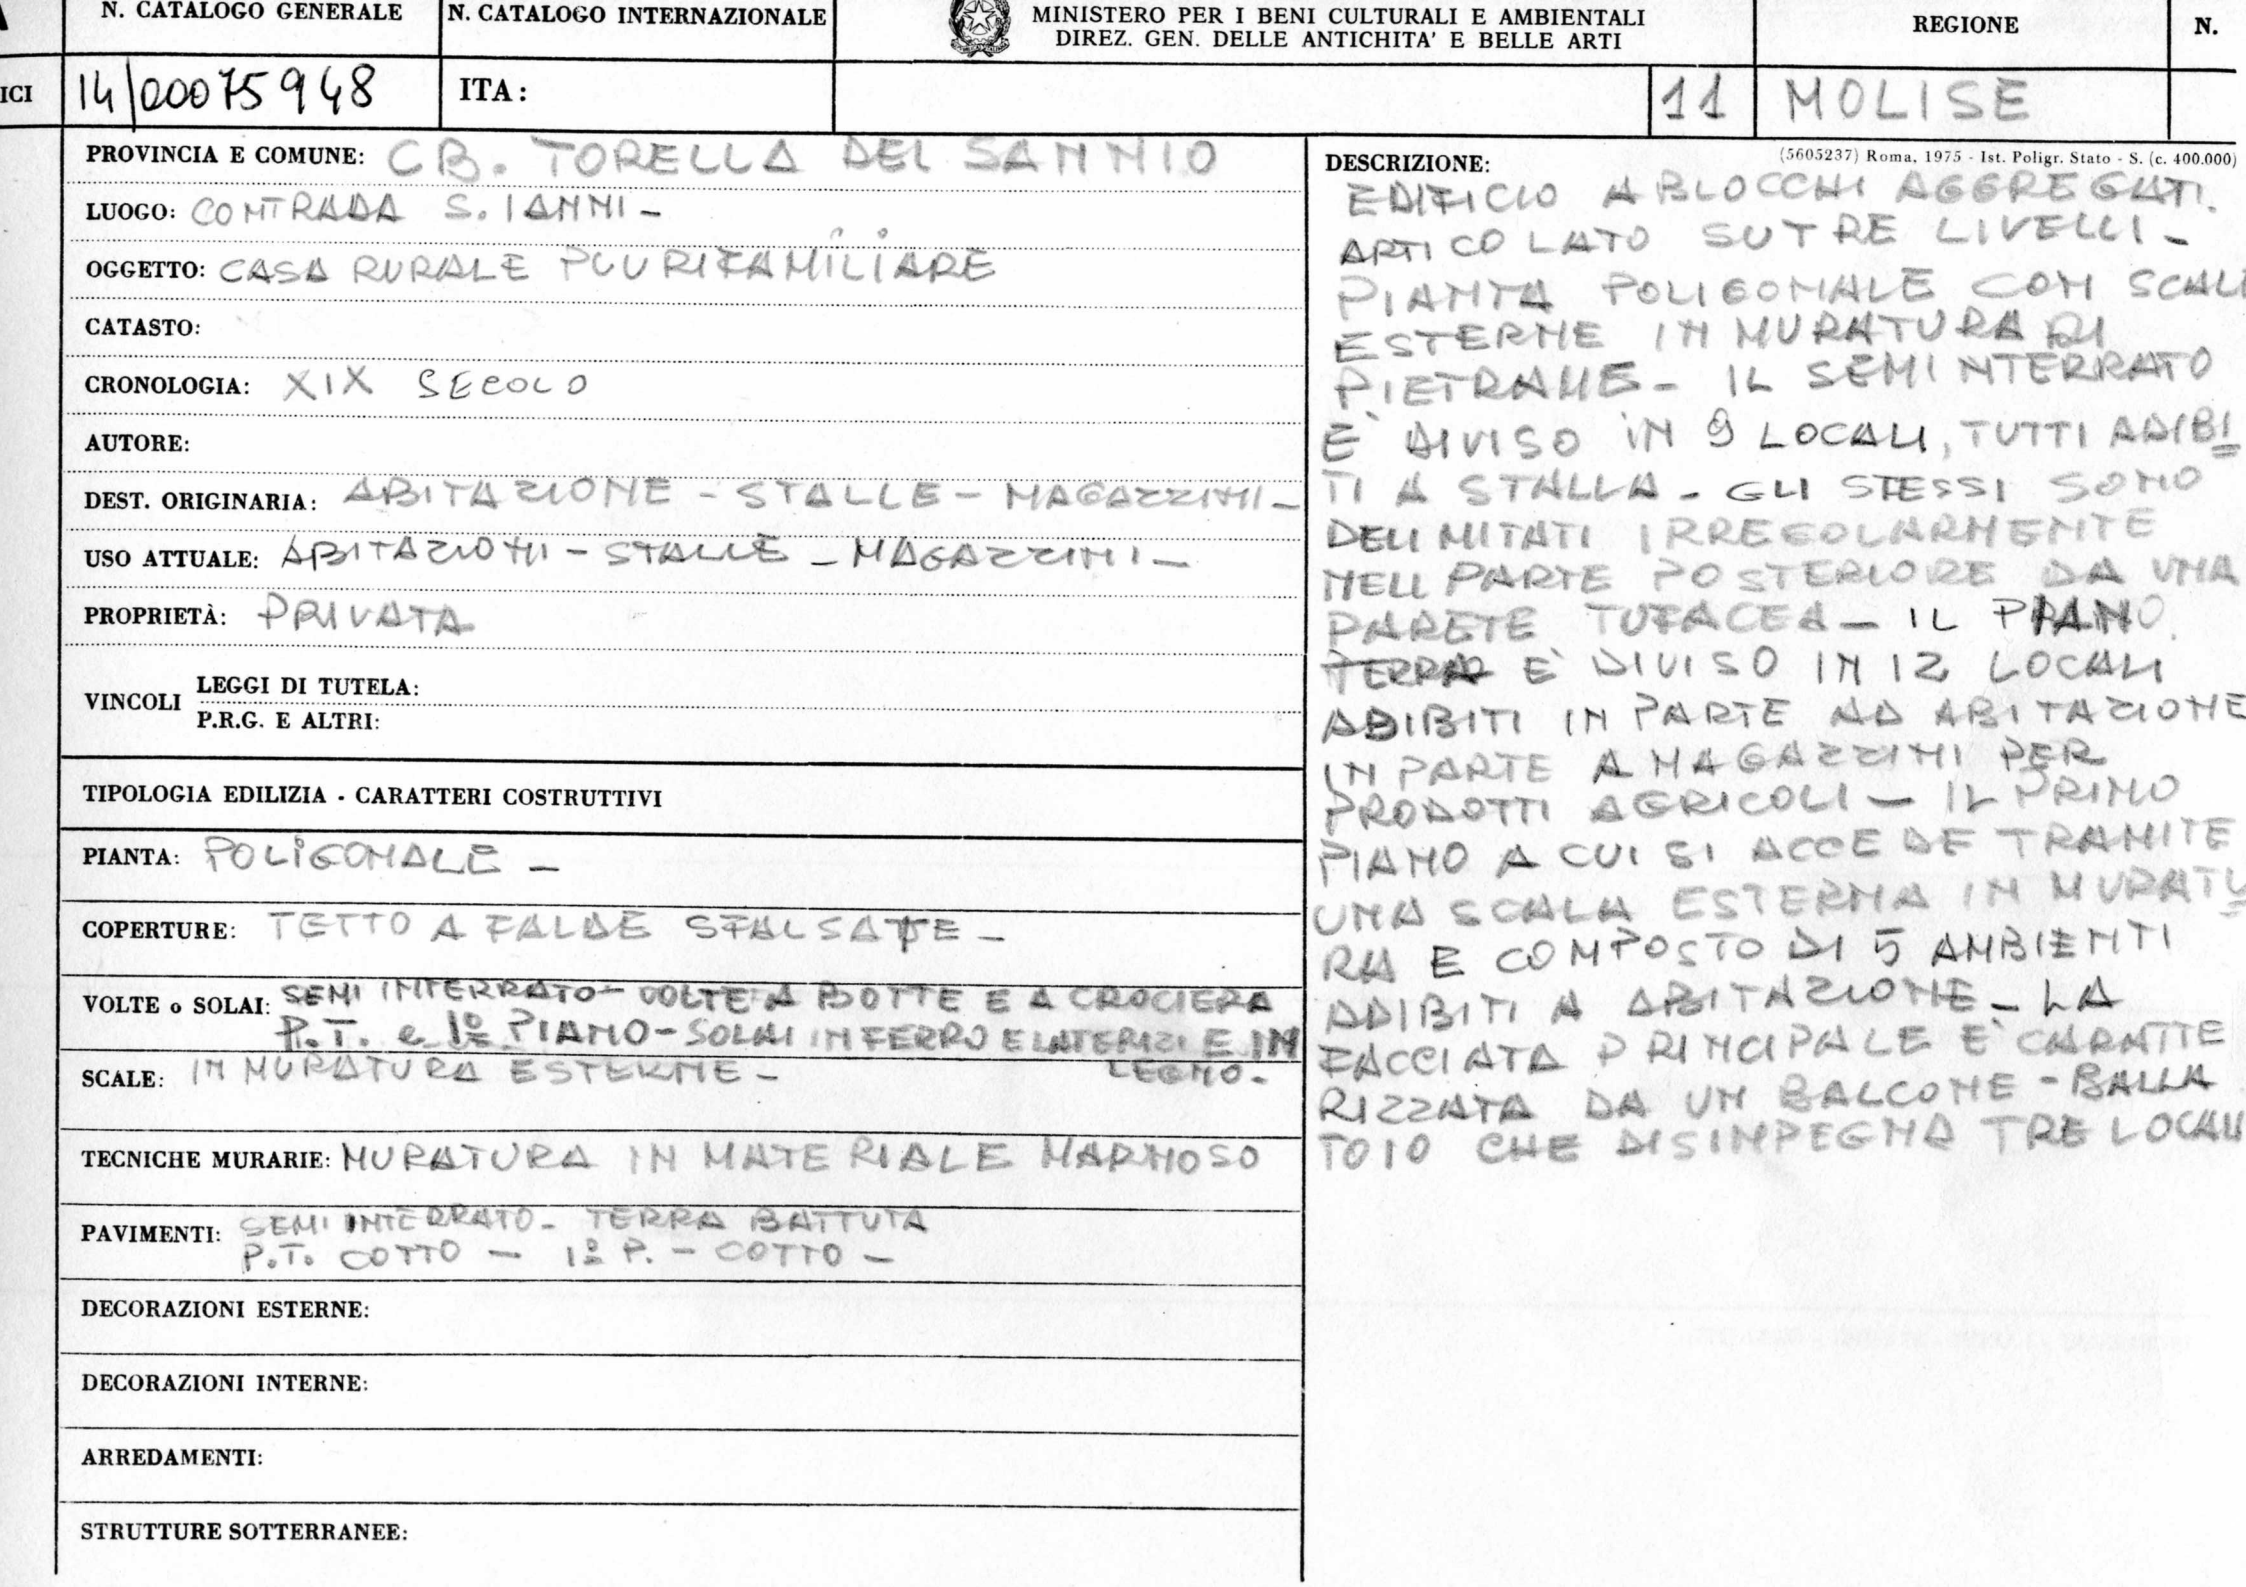 N. CATALOGO GENERALE
N. CATALOGO INTERNAZIONALE
MINISTERO PER I BENI CULTURALI E AMBIENTALI
DIREZ. GEN. DELLE ANTICHITA' E BELLE ARTI
REGIONE
N.
ICI
14/00075948
ITA:
11
MOLISE
PROVINCIA E COMUNE: CB. TORELLA DEL SANNIO
LUOGO: CONTRADA S. IANNI -
OGGETTO: CASA RURALE PLURIFAMILIARE
CATASTO:
CRONOLOGIA: XIX SECOLO
AUTORE:
DEST. ORIGINARIA: ABITAZIONE - STALLE - MAGAZZINI -
USO ATTUALE: ABITAZIONI - STALLE - MAGAZZINI -
PROPRIETÀ: PRIVATA
VINCOLI
LEGGI DI TUTELA:
P.R.G. E ALTRI:
TIPOLOGIA EDILIZIA - CARATTERI COSTRUTTIVI
PIANTA: POLIGONALE -
COPERTURE: TETTO A FALDE SFALSATE -
VOLTE o SOLAI: SEMINTERRATO - VOLTE A BOTTE E A CROCIERA
P.T. e 1º PIANO - SOLAI IN FERRO E LATERIZI E IN
LEGNO -
SCALE: IN MURATURA ESTERNE -
TECNICHE MURARIE: MURATURA IN MATERIALE MARNOSO
PAVIMENTI: SEMINTERRATO - TERRA BATTUTA
P.T. COTTO - 1º P. - COTTO -
DECORAZIONI ESTERNE:
DECORAZIONI INTERNE:
ARREDAMENTI:
STRUTTURE SOTTERRANEE:
DESCRIZIONE:
(5605237) Roma, 1975 - Ist. Poligr. Stato - S. (c. 400.000)
EDIFICIO A BLOCCHI AGGREGATI.
ARTICOLATO SU TRE LIVELLI -
PIANTA POLIGONALE CON SCALE
ESTERNE IN MURATURA DI
PIETRAME - IL SEMINTERRATO
E' DIVISO IN 9 LOCALI, TUTTI ADIBI
TI A STALLA - GLI STESSI SONO
DELIMITATI IRREGOLARMENTE
NELL PARTE POSTERIORE DA UNA
PARETE TUFACEA - IL PIANO
TERRA E' DIVISO IN 12 LOCALI
ADIBITI IN PARTE AD ABITAZIONE
IN PARTE A MAGAZZINI PER
PRODOTTI AGRICOLI - IL PRIMO
PIANO A CUI SI ACCEDE TRAMITE
UNA SCALA ESTERNA IN MURATU
RA E COMPOSTO DI 5 AMBIENTI
ADIBITI A ABITAZIONE - LA
FACCIATA PRINCIPALE E' CARATTE
RIZZATA DA UN BALCONE - BALLA
TOIO CHE DISIMPEGNA TRE LOCALI